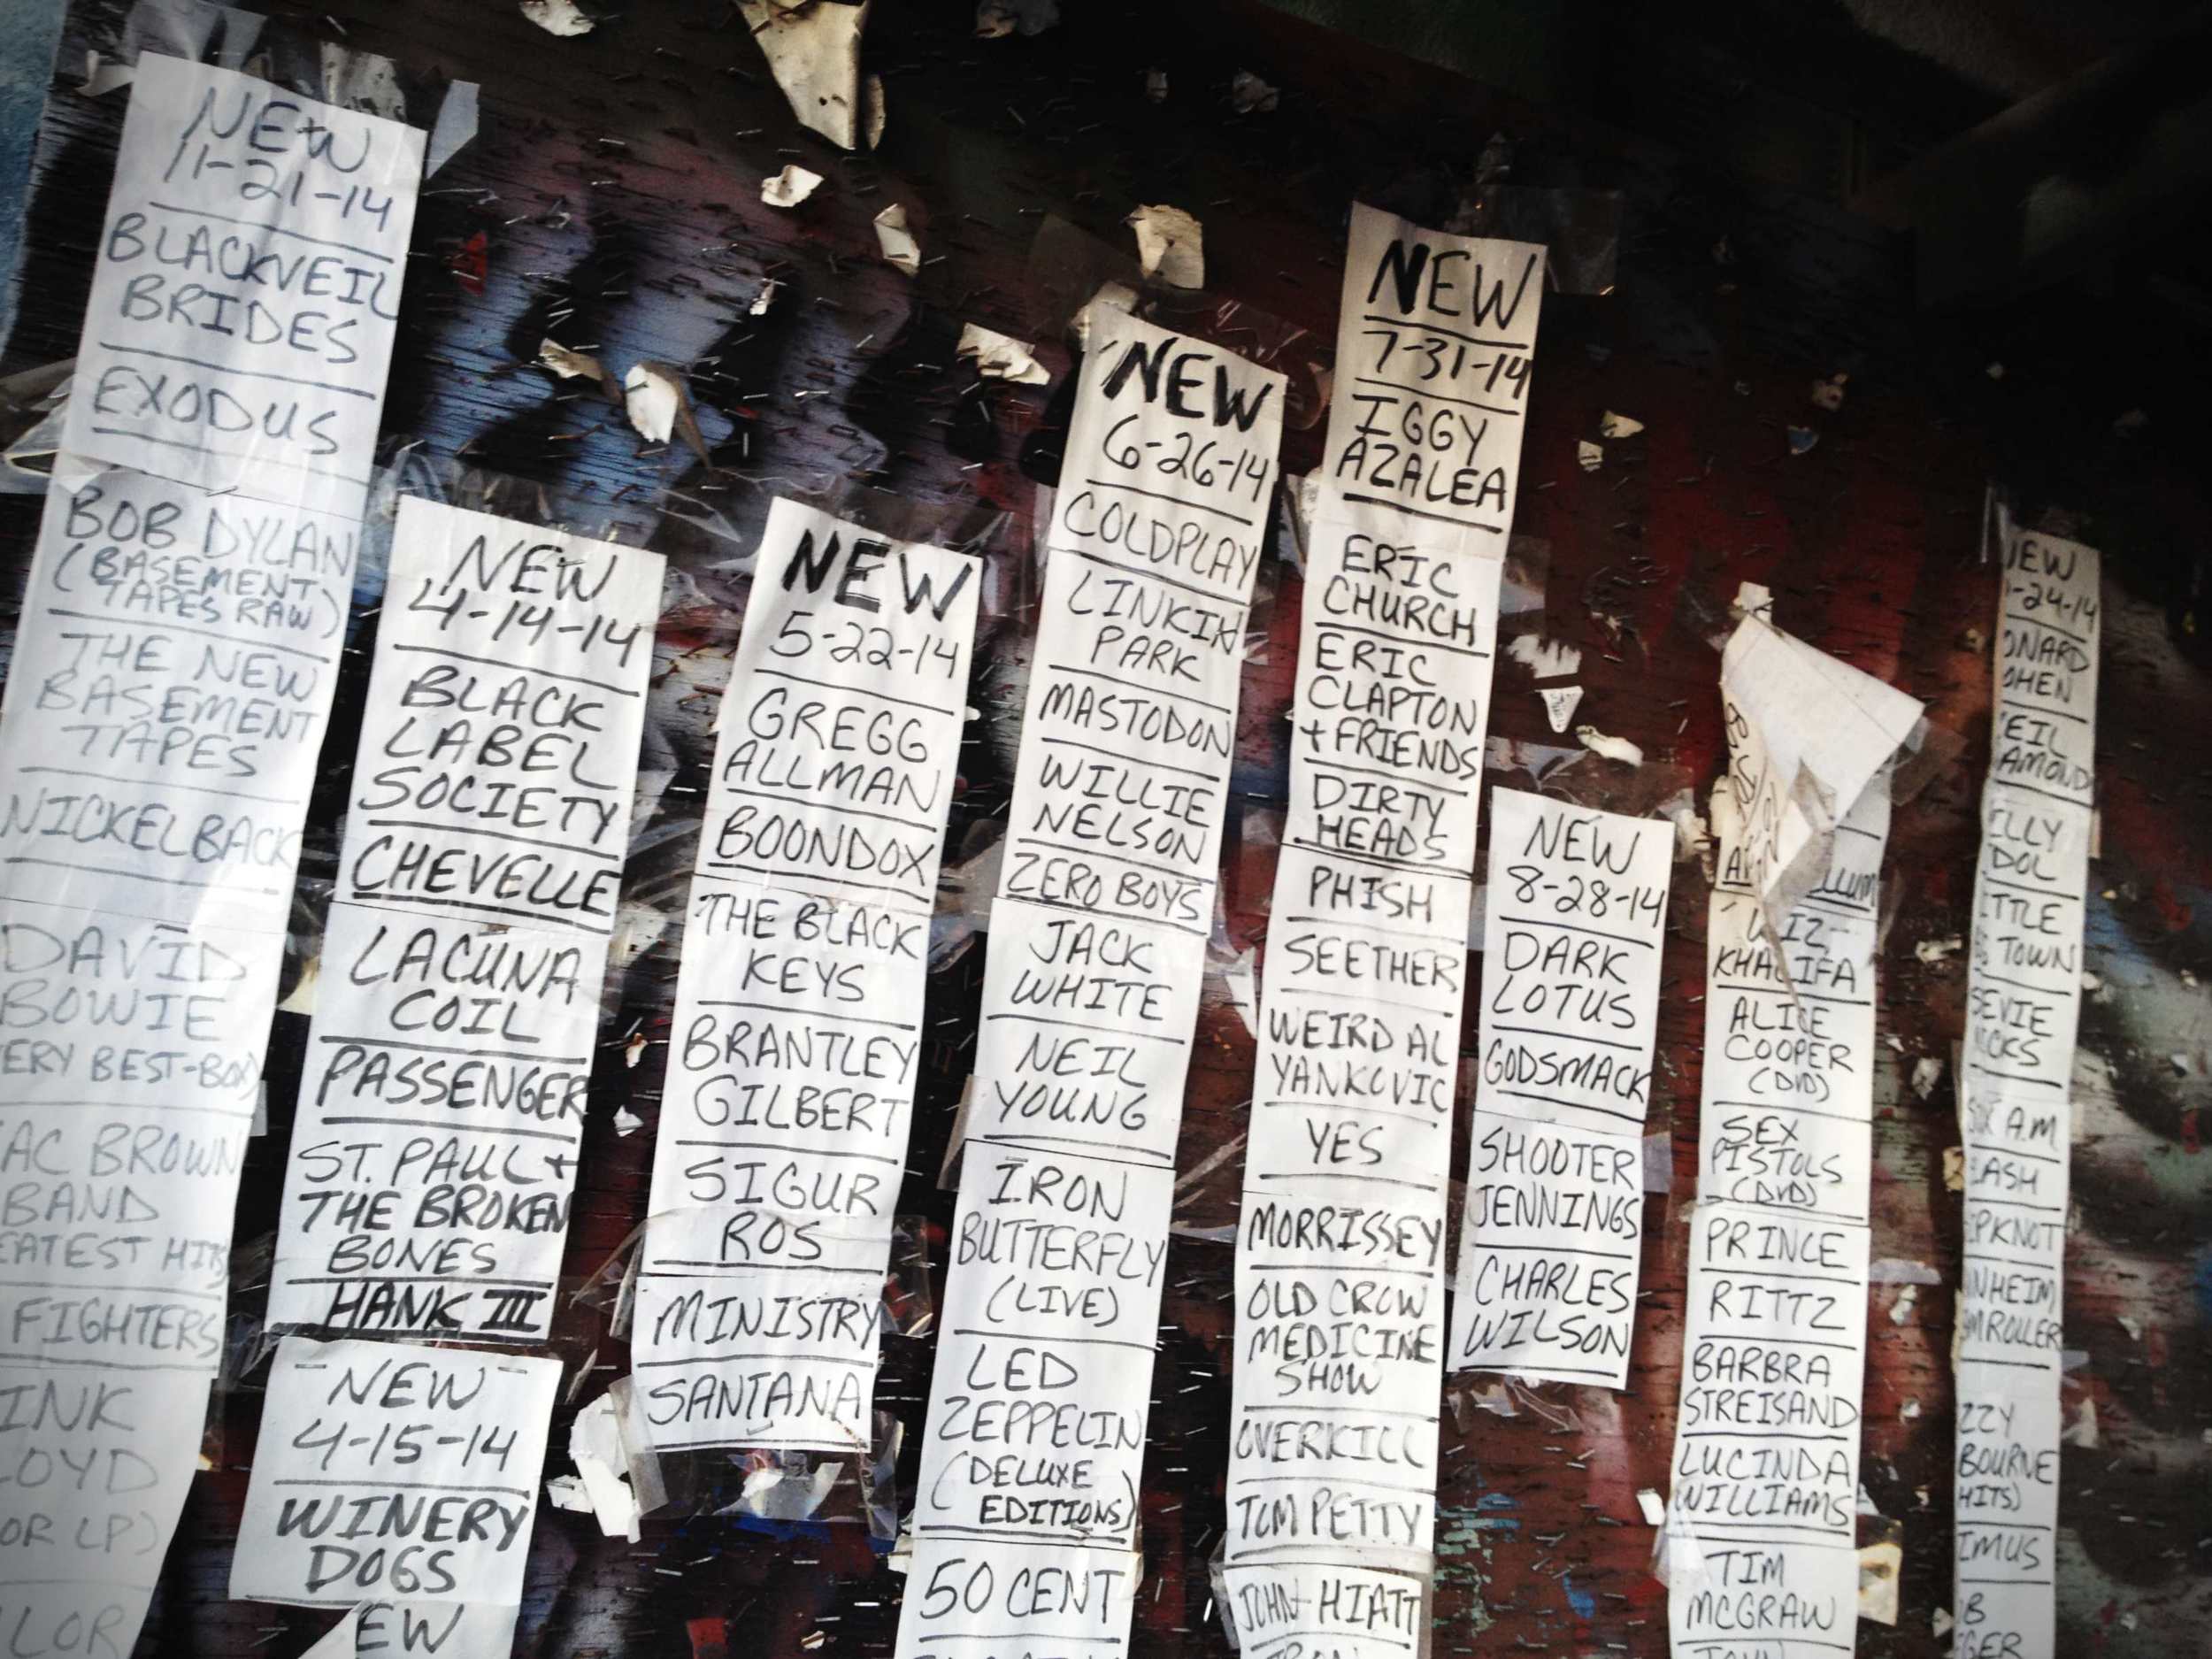 NEW
11-21-14
BLACKVEIL
BRIDES
EXODUS
BOB DYLAN
(BASEMENT
TAPES RAW)
THE NEW
BASEMENT
TAPES
NICKELBACK
DAVID
BOWIE
ERY BEST-BOX)
AC BROWN
BAND
EATEST HITS
FIGHTERS
INK
LOYD
OR LP)
LOR
NEW
4-14-14
BLACK
LABEL
SOCIETY
CHEVELLE
LACUNA
COIL
PASSENGER
ST. PAUL +
THE BROKEN
BONES
HANK III
NEW
4-15-14
WINERY
DOGS
EW
NEW
5-22-14
GREGG
ALLMAN
BOONDOX
THE BLACK
KEYS
BRANTLEY
GILBERT
SIGUR
ROS
MINISTRY
SANTANA
NEW
6-26-14
COLDPLAY
LINKIN
PARK
MASTODON
WILLIE
NELSON
ZERO BOYS
JACK
WHITE
NEIL
YOUNG
IRON
BUTTERFLY
(LIVE)
LED
ZEPPELIN
(DELUXE
EDITIONS)
50 CENT
NEW
7-31-14
IGGY
AZALEA
ERIC
CHURCH
ERIC
CLAPTON
+ FRIENDS
DIRTY
HEADS
PHISH
SEETHER
WEIRD AL
YANKOVIC
YES
MORRISSEY
OLD CROW
MEDICINE
SHOW
OVERKILL
TOM PETTY
JOHN HIATT
NEW
8-28-14
DARK
LOTUS
GODSMACK
SHOOTER
JENNINGS
CHARLES
WILSON
WIZ-
KHALIFA
ALICE
COOPER
(DVD)
SEX
PISTOLS
(DVD)
PRINCE
RITTZ
BARBRA
STREISAND
LUCINDA
WILLIAMS
TIM
MCGRAW
JOHN
EW
-24-14
ONARD
OHEN
EIL
AMOND
ILLY
DOL
ITTLE
TOWN
EVIE
ICKS
A.M
LASH
IPKNOT
NHEIM
MROLLER
ZZY
BOURNE
HITS)
IMUS
B
EGER